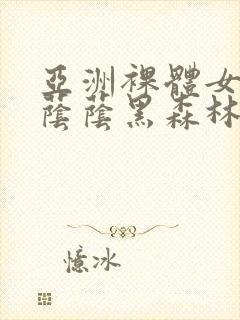 亞洲裸體女
蔭蔭黑森林
憶冰